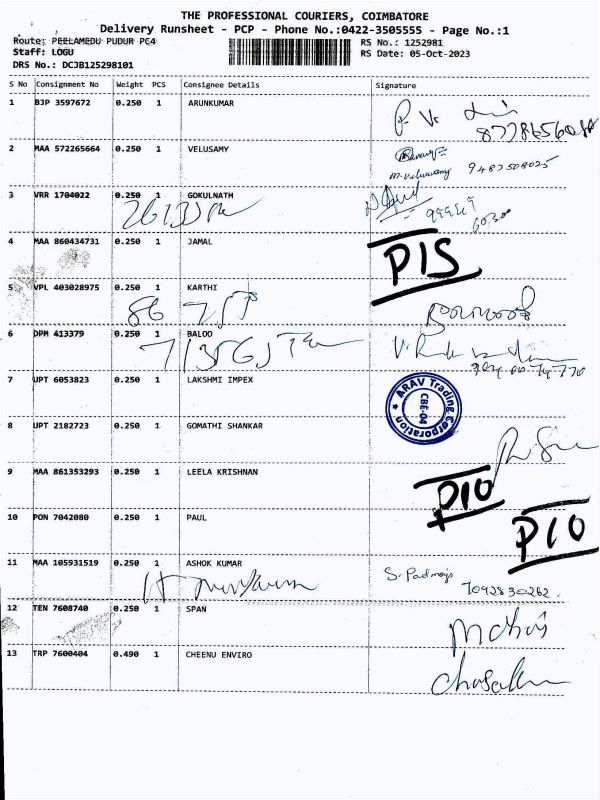 THE PROFESSIONAL COURIERS, COIMBATORE
Delivery Runsheet - PCP - Phone No.:0422-3505555 - Page No.:1
Route: PEELAMEDU PUDUR PC4
RS No.: 1252981
Staff: LOGU
RS Date: 05-Oct-2023
DRS No.: DCJB125298101
S No Consignment No Weight PCS Consignee Details Signature
1 BJP 3597672 0.250 1 ARUNKUMAR
2 MAA 572265664 0.250 1 VELUSAMY
9487508025
3 VRR 1704022 0.250 1 GOKULNATH
4 MAA 860434731 0.250 1 JAMAL
PIS
5 VPL 403028975 0.250 1 KARTHI
6 DPM 413379 0.250 1 BALOO
7 UPT 6053823 0.250 1 LAKSHMI IMPEX
ARAV Trading Corporation
CBE-04
8 UPT 2182723 0.250 1 GOMATHI SHANKAR
9 MAA 861353293 0.250 1 LEELA KRISHNAN
PIO
10 PON 7042080 0.250 1 PAUL
PIO
11 MAA 105931519 0.250 1 ASHOK KUMAR
7092830262
12 TEN 7608740 0.250 1 SPAN
13 TRP 7600404 0.490 1 CHEENU ENVIRO